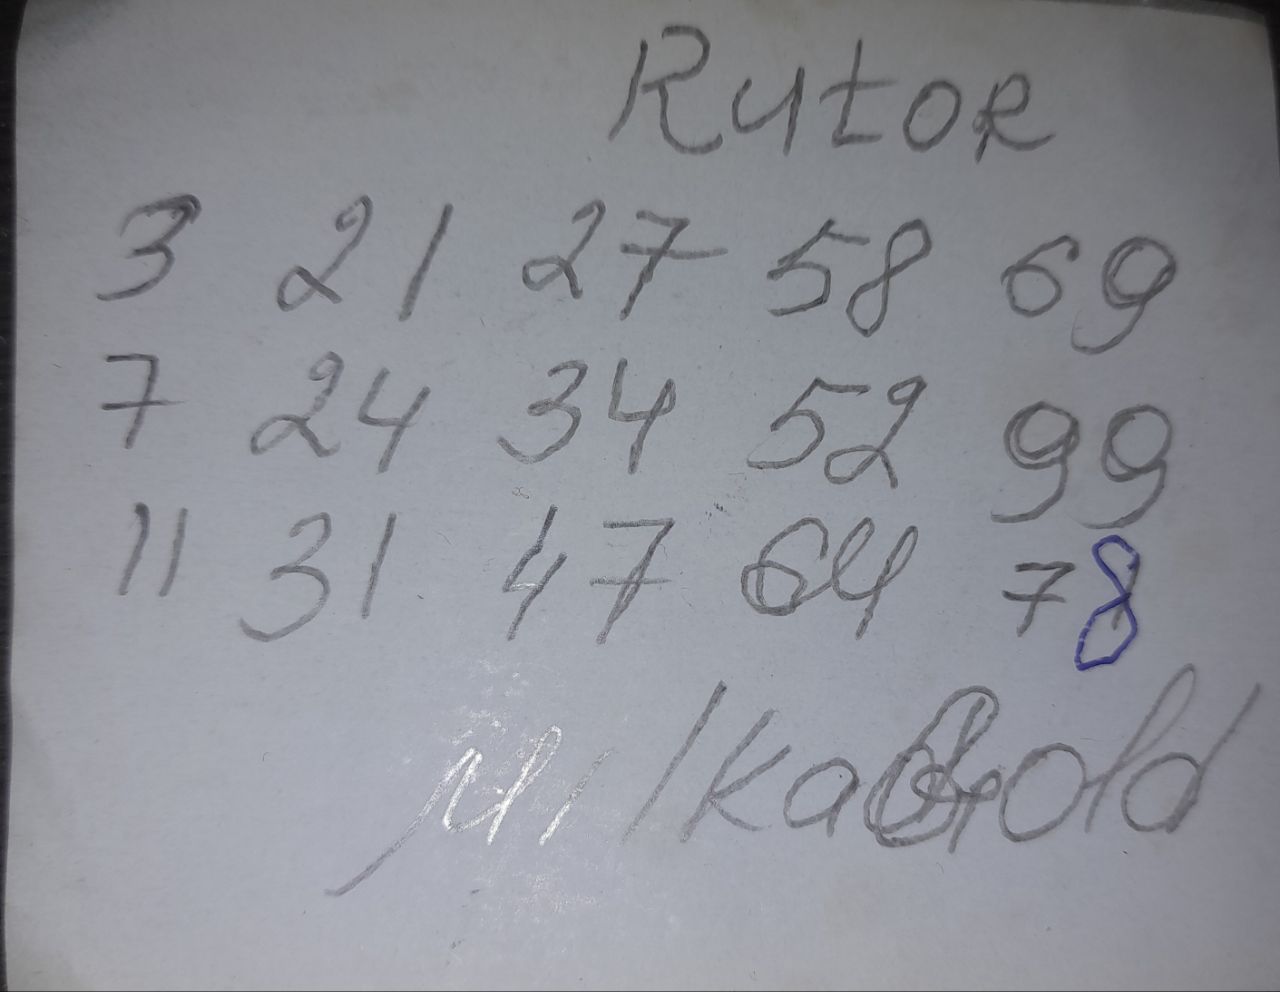 Rutor
3 21 27 58 69
7 24 34 52 99
11 31 47 64 78
MilkaGold